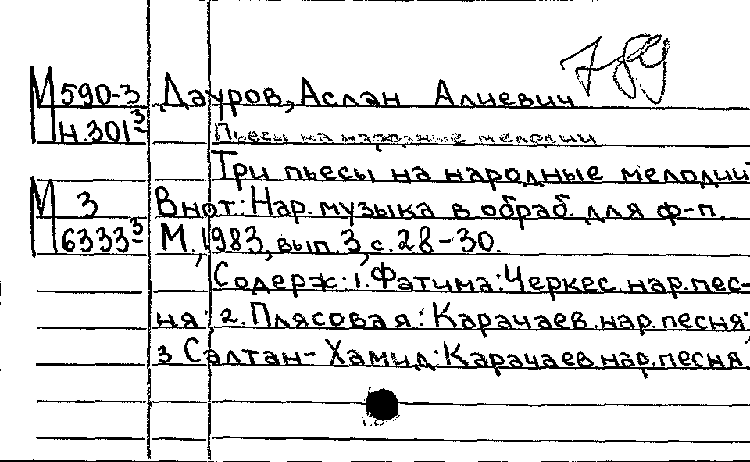 789
М 590-3 Дауров, Аслан Алиевич
Н.301³ Пьесы на народные мелодии
Три пьесы на народные мелодии
М 3 В нот: Нар. музыка в обраб. для ф-п.
6333³ М., 1983, вып. 3, с. 28-30.
Содерж: 1. Фатима: Черкес. нар. пес-
ня; 2. Плясовая: Карачаев. нар. песня;
3 Салтан-Хамид: Карачаев. нар. песня.